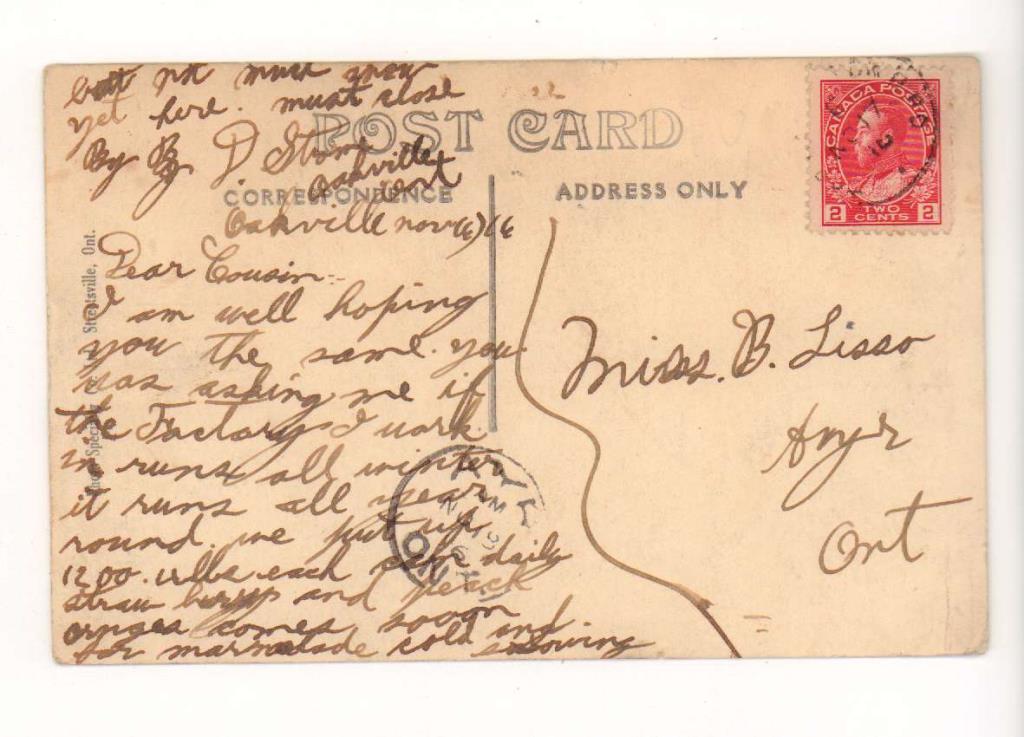 but not much snow
yet here. must close
By By. D Stone
Oakville
ont
POST CARD
CORRESPONDENCE
ADDRESS ONLY
CANADA POSTAGE
2 TWO CENTS 2
Oakville nov 16
Dear Cousin
I am well hoping
you the same. you
was asking me if
the Factory I work
in runs all winter
it runs all year
round. we put up
1200. each daily
straw and peach
oranges comes sooon
for marmalade cold and snowing
Miss. B. Lisso
Ayr
Ont
Streetsville, Ont.
AYR
AM
NO 18
ONT